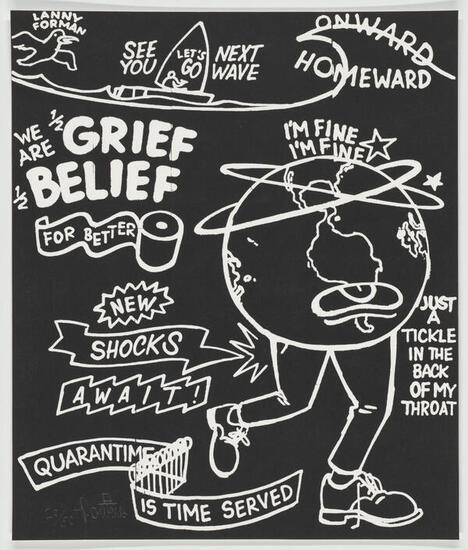 LANNY
FORMAN
SEE
YOU
LET'S
GO
NEXT
WAVE
ONWARD
HOMEWARD
WE
ARE
1/2 GRIEF
1/2 BELIEF
FOR BETTER
I'M FINE
I'M FINE!
NEW
SHOCKS
AWAIT!
JUST
A
TICKLE
IN THE
BACK
OF MY
THROAT
QUARANTINE
IS TIME SERVED